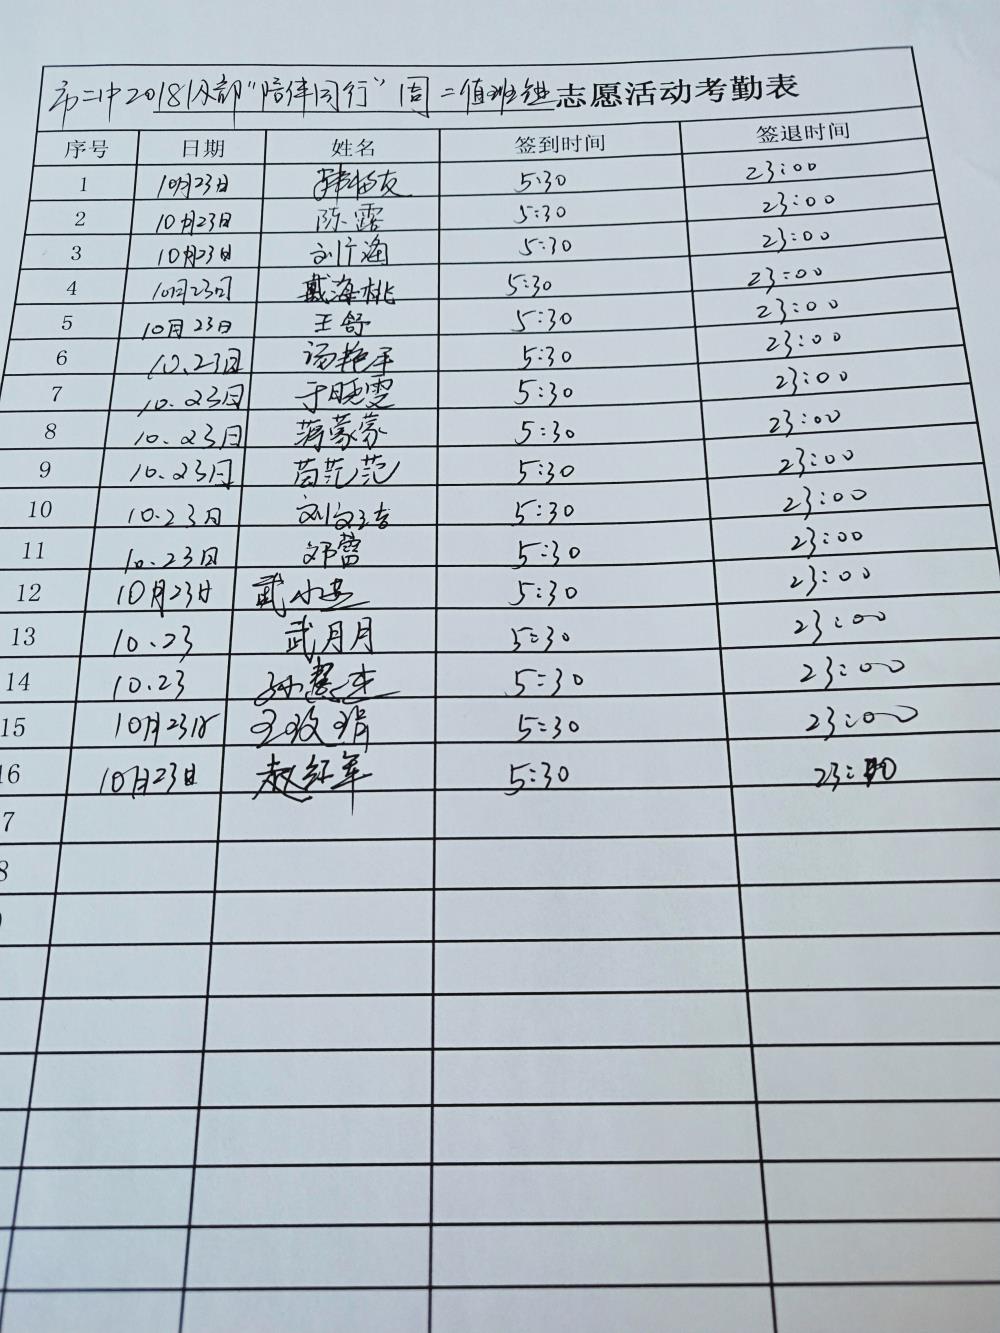 市二中2018级部"陪伴同行"周二值班组志愿活动考勤表
序号 日期 姓名 签到时间 签退时间
1 10月23日 5:30 23:00
2 10月23日 陈露 5:30 23:00
3 10月23日 5:30 23:00
4 10月23日 戴海桃 5:30 23:00
5 10月23日 王舒 5:30 23:00
6 10.23日 5:30 23:00
7 10.23日 于晓雯 5:30 23:00
8 10.23日 蒋蒙蒙 5:30 23:00
9 10.23日 苗范范 5:30 23:00
10 10.23日 5:30 23:00
11 10.23日 邓蕾 5:30 23:00
12 10月23日 5:30 23:00
13 10.23 武月月 5:30 23:00
14 10.23 5:30 23:00
15 10月23日 王玫娟 5:30 23:00
16 10月23日 赵红军 5:30 23:00
7
8